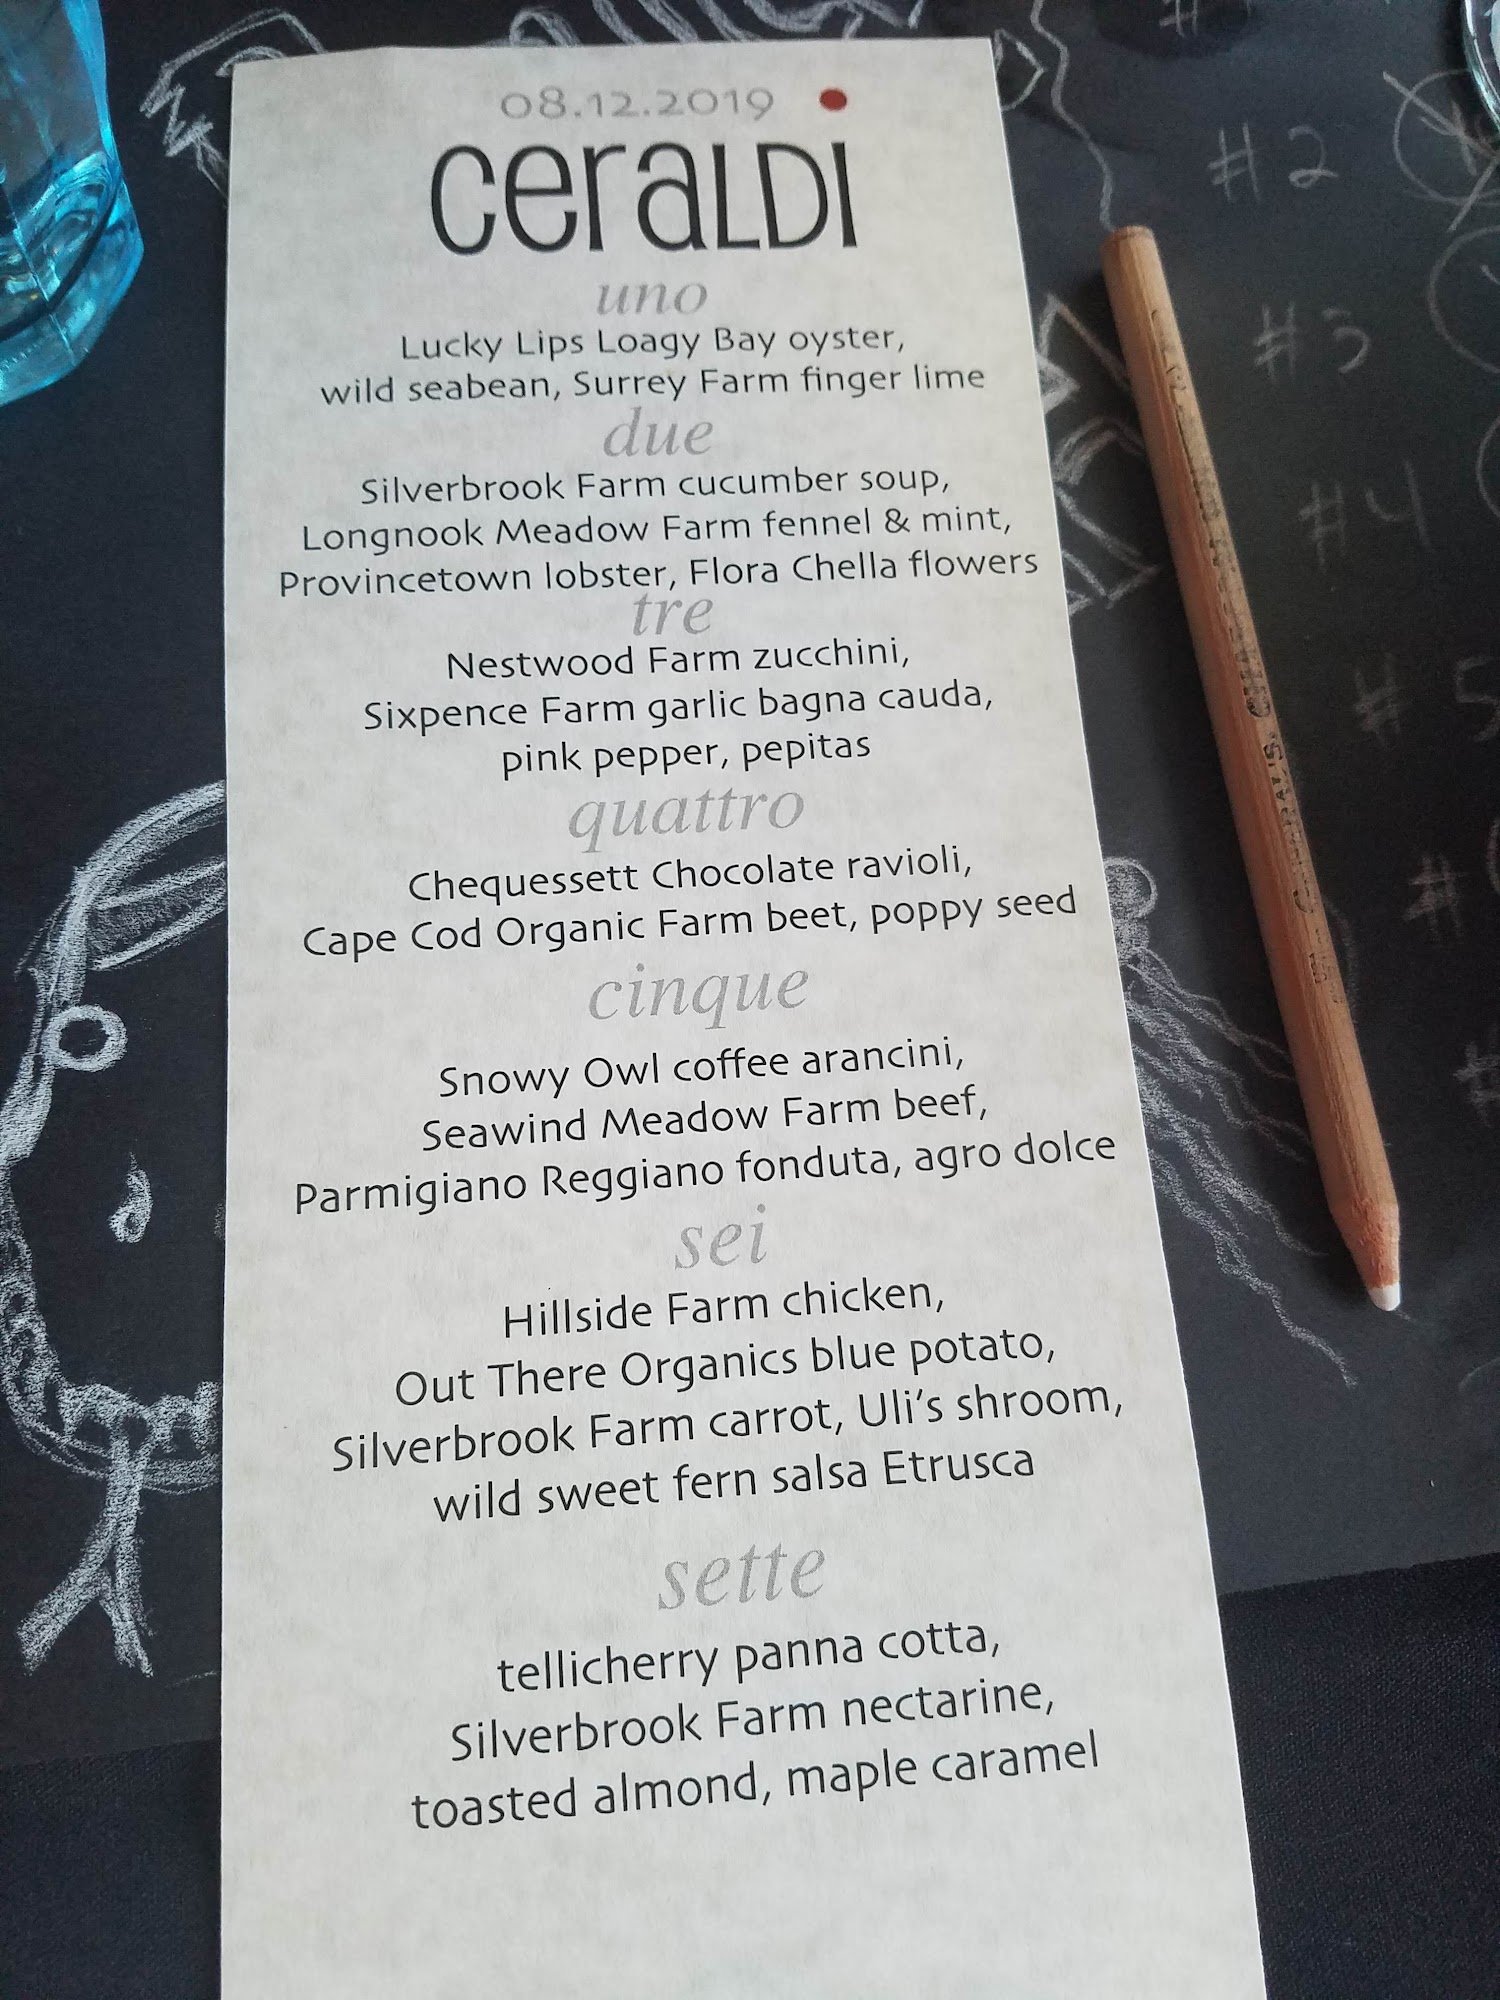 08.12.2019
ceraLDi
uno
Lucky Lips Loagy Bay oyster,
wild seabean, Surrey Farm finger lime
due
Silverbrook Farm cucumber soup,
Longnook Meadow Farm fennel & mint,
Provincetown lobster, Flora Chella flowers
tre
Nestwood Farm zucchini,
Sixpence Farm garlic bagna cauda,
pink pepper, pepitas
quattro
Chequessett Chocolate ravioli,
Cape Cod Organic Farm beet, poppy seed
cinque
Snowy Owl coffee arancini,
Seawind Meadow Farm beef,
Parmigiano Reggiano fonduta, agro dolce
sei
Hillside Farm chicken,
Out There Organics blue potato,
Silverbrook Farm carrot, Uli's shroom,
wild sweet fern salsa Etrusca
sette
tellicherry panna cotta,
Silverbrook Farm nectarine,
toasted almond, maple caramel
#2
#3
#4
#5
#
#